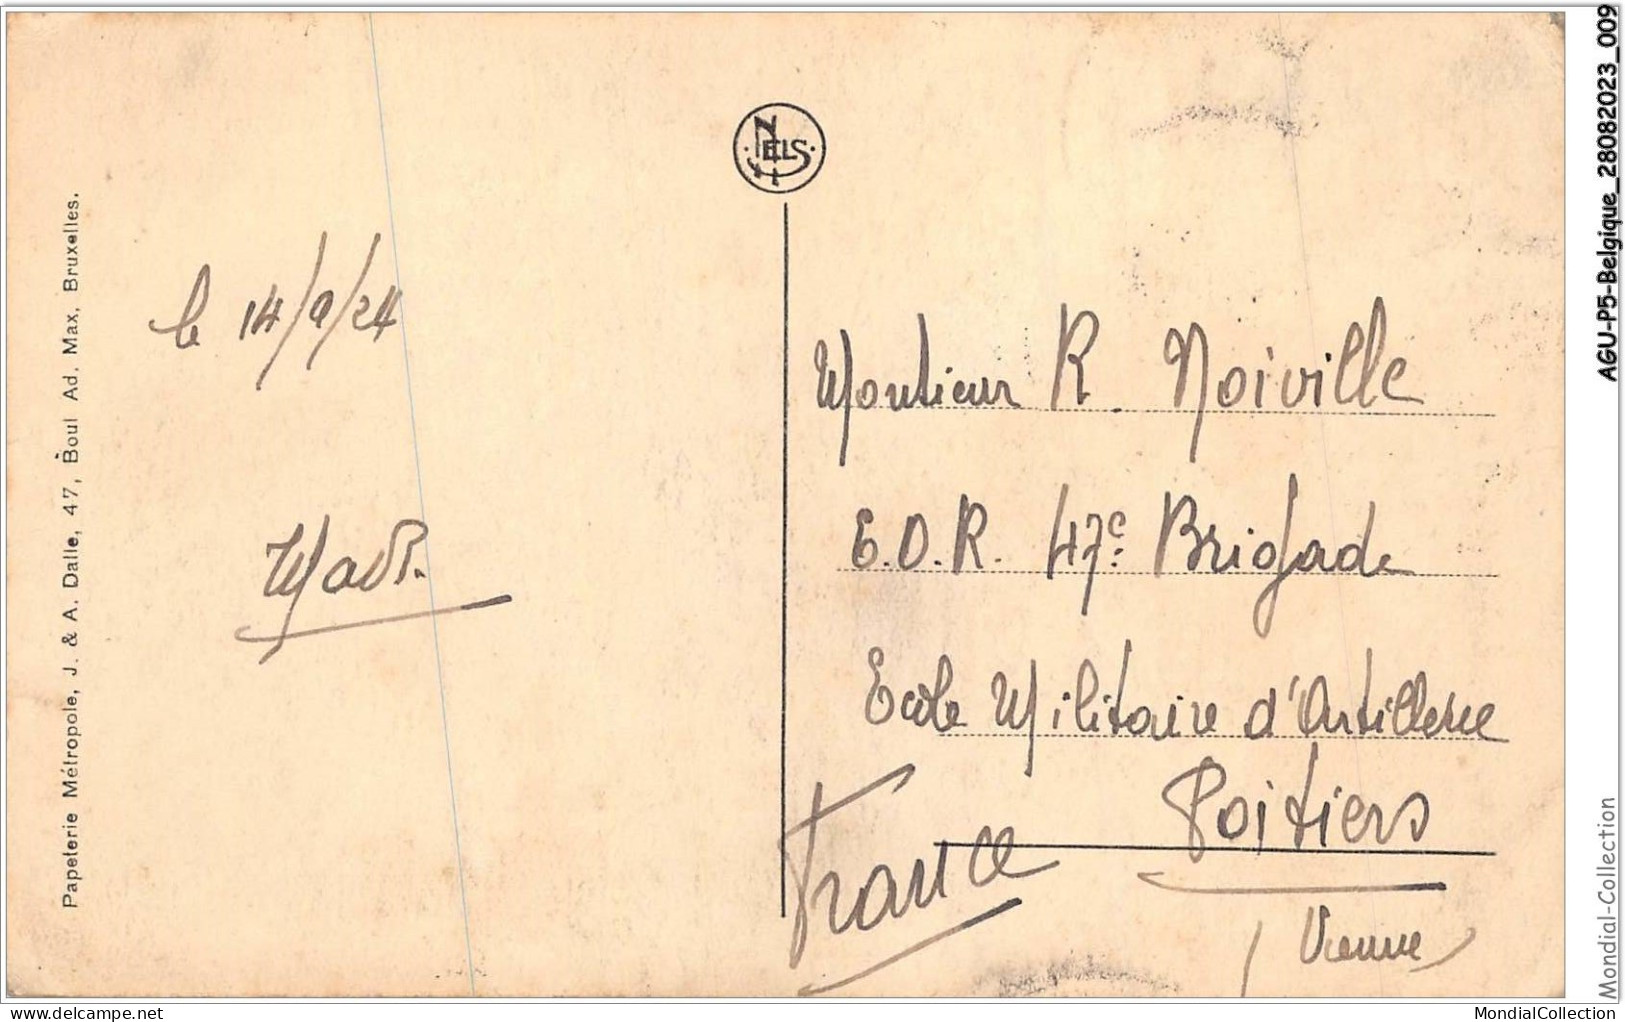 Papeterie Métropole, J. & A. Dalle, 47, Boul Ad. Max, Bruxelles.
le 14/9/24
Mad.
NELS
Monsieur R. Noiville
E.O.R. 47e Brigade
Ecole Militaire d'Artillerie
Poitiers
France
(Vienne)
AGU-P5-Belgique_28082023_009
Mondial-Collection
delcampe.net
MondialCollection